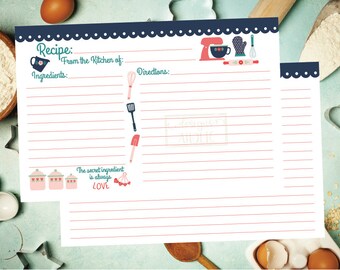 Recipe:
From the Kitchen of:
Ingredients:
Directions:
The secret ingredient
is always
LOVE